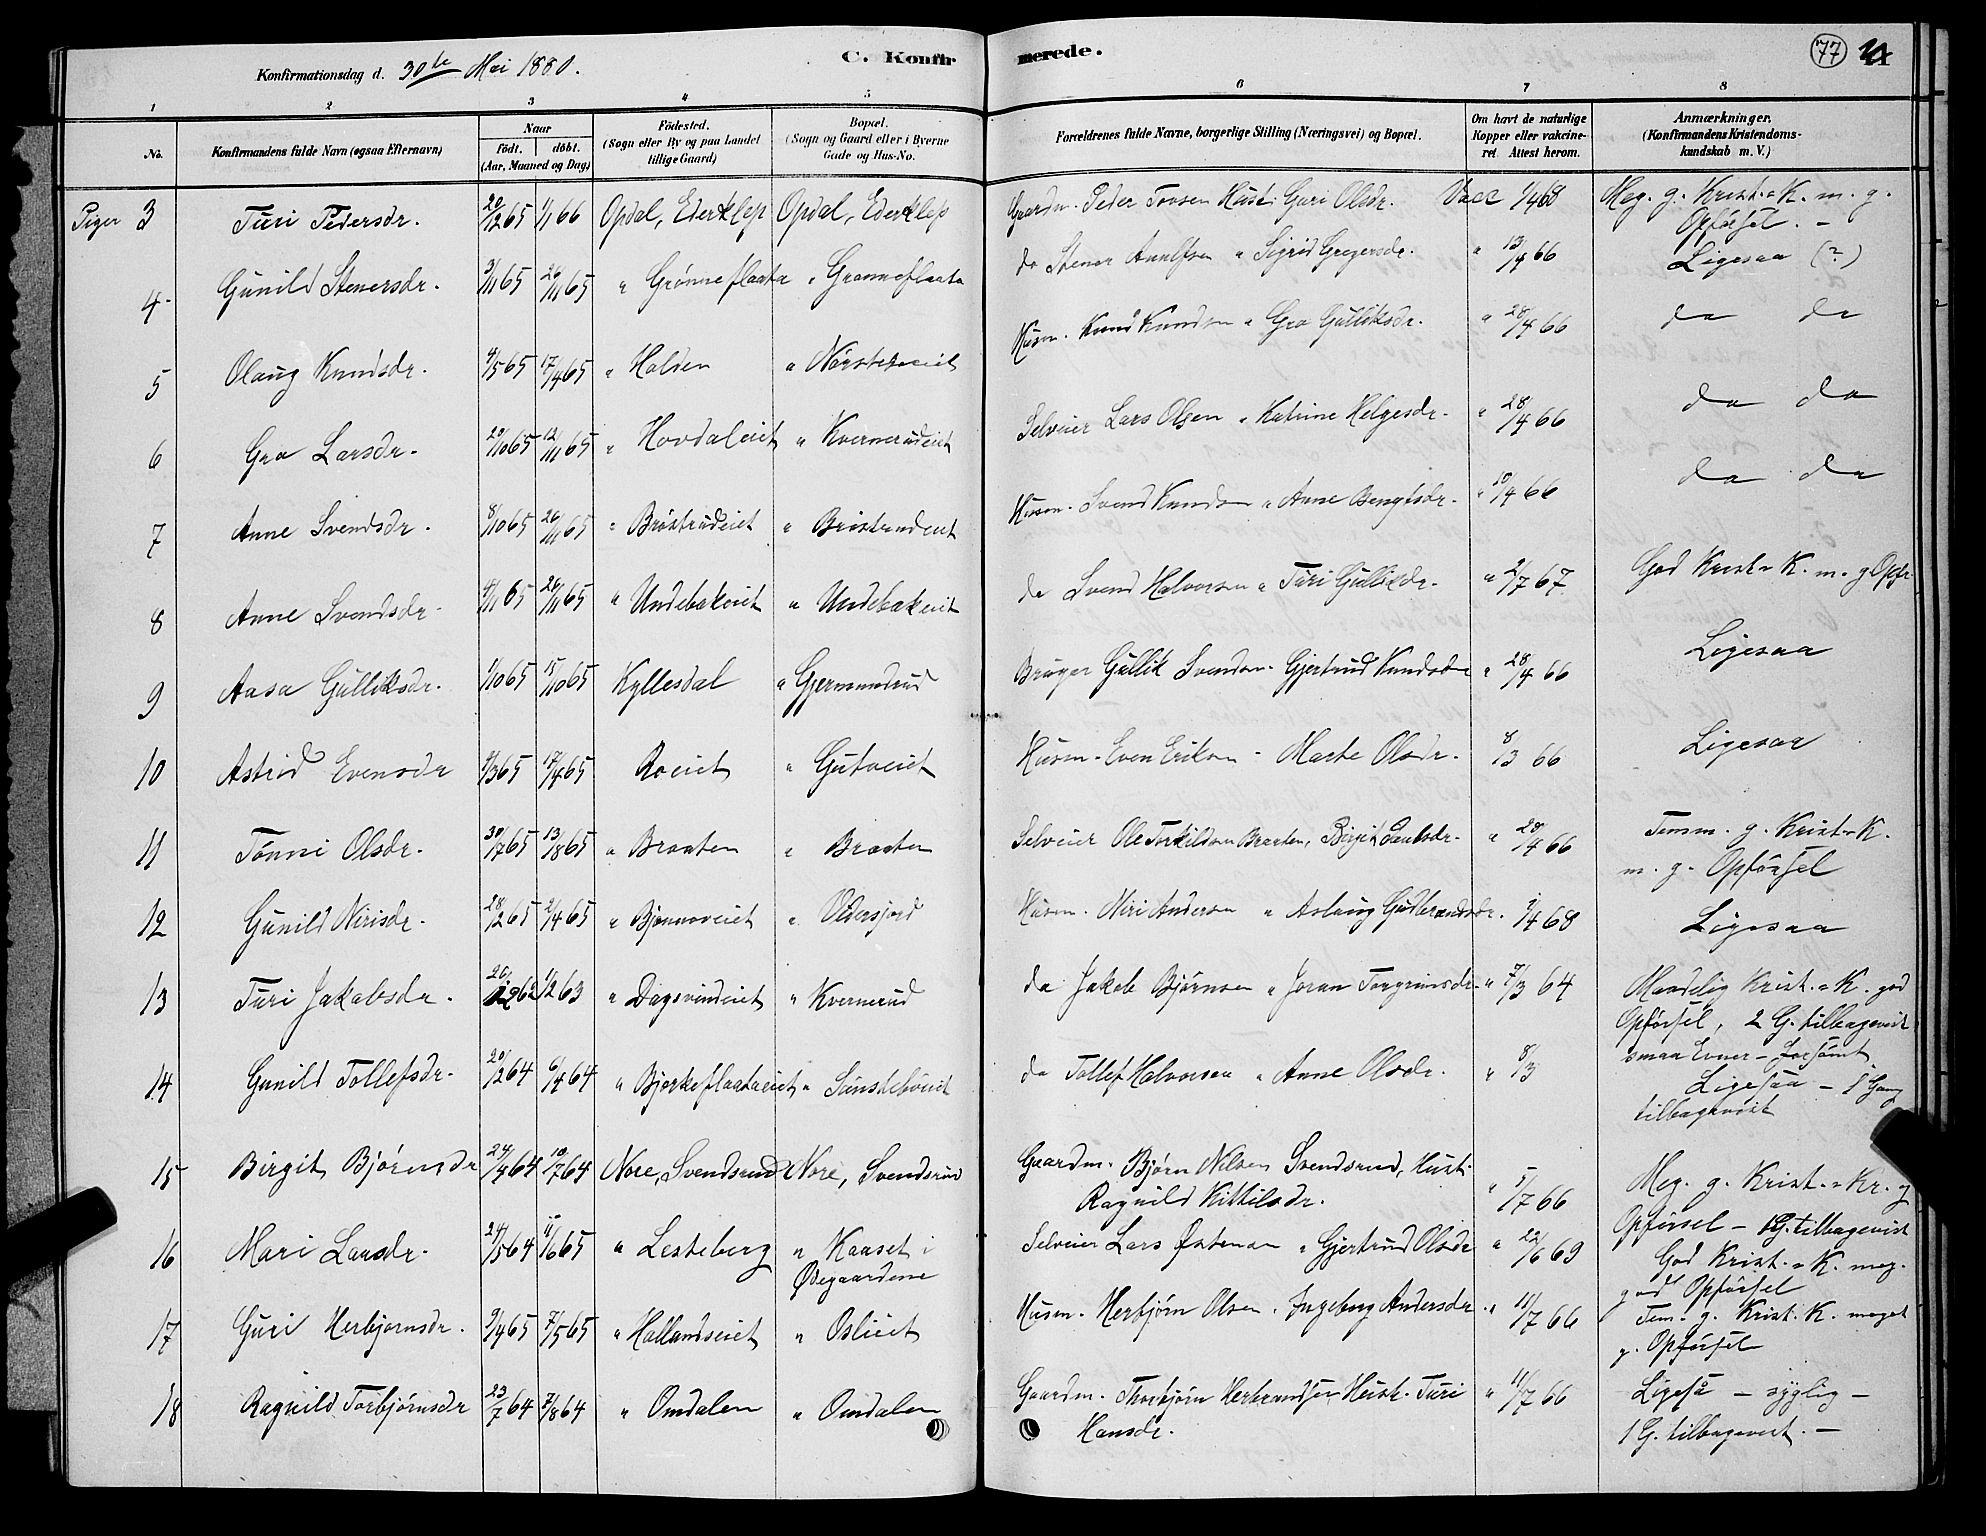 Konfirmationsdag d. 30te Mai 1880. C. Konfir merede. 77
1 2 3 4 5 6 7 8
No. Konfirmandens fulde Navn (ogsaa Efternavn) Naar Født. døbt. (Aar, Maaned og Dag) Fødested. (Sogn eller By og paa Landet tillige Gaard) Bopæl. (Sogn og Gaard eller i Byerne Gade og Hus-No. Forældrenes fulde Navne, borgerlige Stilling (Næringsvei) og Bopæl. Om havt de naturlige Kopper eller vakcineret. Attest herom. Anmærkninger. (Konfirmandens Kristendomskundskab m. V.)
Piger 3 Turi Pedersdr. 20/12 65 1/1 66 Opdal, Ederklep Opdal, Ederklep Gaardm. Peder Toosen Hust. Guri Olsdr. Vacc 1/4 68 Meg. g. Krist. K. m. g. Opførsel. -
4 Gunild Stenersdr. 3/11 65 26/11 65 " Grønneflaata " Grønneflaata do Stener Arnulfsen " Sigrid Gregersdr. " 13/4 66 Ligesaa (?)
5 Olaug Knudsdr. 4/5 65 17/4 65 " Halsen " Husm. Knud Knudsen " Gro Gulliksdr. " 28/4 66 do do
6 Gro Larsdr. 20/10 65 12/11 65 " Hovdaleiet " Kvernerudeiet Selveier Lars Olsen " Katrine Helgesdr. " 28/4 66 do do
7 Anne Svendsdr. 8/10 65 26/11 65 " Brøstrudeiet " Brøstrudeiet Husm. Svend Knudsen " Anne Bengtsdr. " 10/4 66 do do
8 Anne Svendsdr. 4/11 65 26/11 65 " Undebakeiet " Undebakeiet do Svend Halvorsen " Turi Gulliksdr. " 2/7 67 God Krist. K. m. g Opfr
9 Aasa Gulliksdr. 1/10 65 15/10 65 Kyllesdal " Gjermundrud Bruger Gullik Svendsen - Gjertrud Knudsdr " 28/4 66 Ligesaa
10 Astrid Evensdr 9/3 65 17/4 65 Roeiet " Gutueiet Husm. Even Eriksen - Marte Olsdr. 8/3 66 Ligesaa
11 Tønni Olsdr. 30/7 65 13/8 65 " Braaten " Braaten Selveier Ole Torkildsen Braaten, Birgit Paulsdr. " 28/4 66 Temm. g. Krist. K. m. g. Opførsel
12 Gunild Nirisdr. 28/2 65 2/4 65 " Bjønnoveiet " Oldersjord Husm. Niri Andersen " Aslaug Gudbrandsdr. 1/4 68 Ligesaa
13 Turi Jakobsdr. 26/12 62 1/2 63 " Dagsvindeiet " Kvernerud do Jakob Bjørnsen " Joran Torgrimsdr. " 7/3 64 Maadelig Krist. K. god Opførsel, 2 G. tilbagevist smaa Evner - forsømt
14 Gunild Tollefsdr. 20/2 64 6/4 64 " Bjorkeflaataeiet " Sønstebøeiet do Tollef Halvorsen " Anne Olsdr. " 8/3 Ligesaa - 1 Gang tilbagevist
15 Birgit Bjørnsdr 24/4 64 10/7 64 Nore, Svendsrud Nore, Svendsrud Gaardm. Bjørn Nilsen Svendsrud, Hust. Ragnild Kittilsdr. " 5/7 66 Meg. g. Krist. Kr. g Opførsel - 1 G. tilbagevist
16 Mari Larsdr. 24/5 64 11/6 65 " Lesteberg " Kaaset i Øvegaardene Selveier Lars Østensen " Gjertrud Olsdr " 22/6 69 God Krist. K. meg. god Opførsel
17 Guri Herbjørnsdr. 9/4 65 7/5 65 " Hallandseiet " Oslieiet Husm. Herbjørn Olsen. Ingeborg Andersdr. " 11/7 66 Tem. g. Krist. K. meget g. Opførsel
18 Ragnild Torbjørnsdr 23/7 64 7/8 64 " Omdalen " Omdalen Gaardm. Thorbjørn Herbrandsen Hust. Turi Hansdr. " 11/7 66 Ligeså - syglig - 1 G. tilbagevist. -